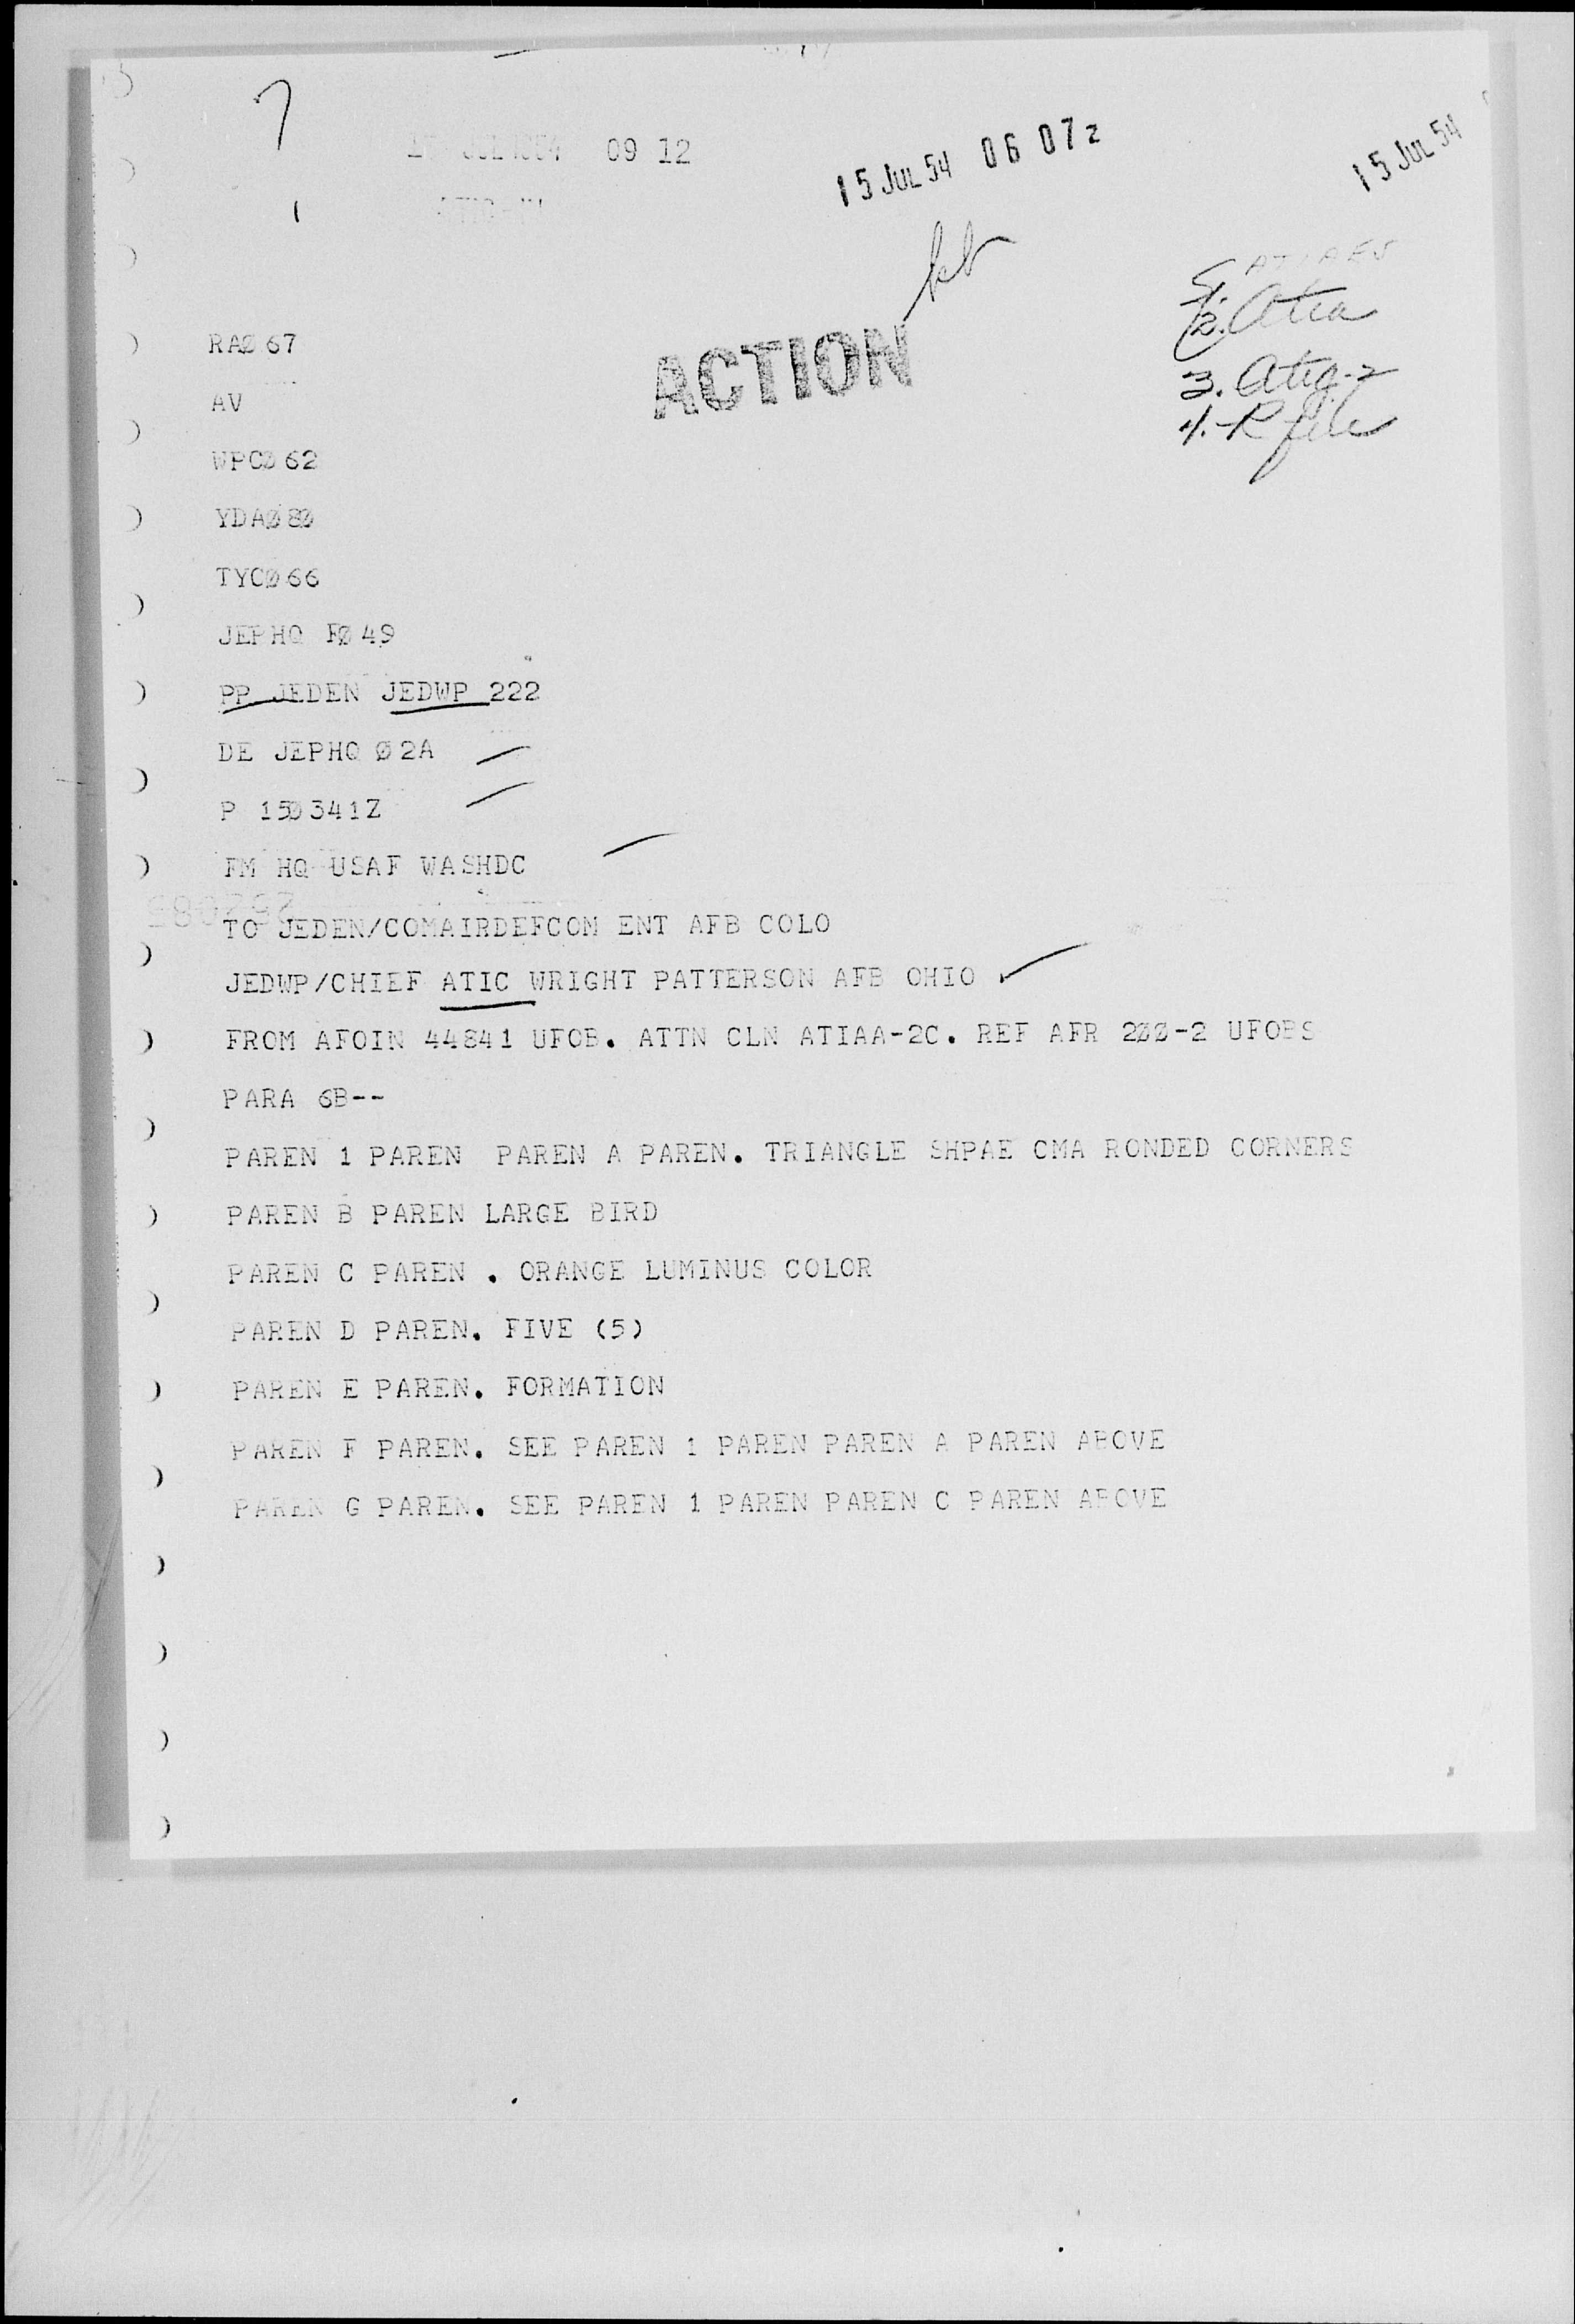 7
09 12
15 JUL 54 06 07z
15 JUL 54
ACTION
3. Atia-2
4. R file
RAØ67
AV
WPCØ62
YDAØ8Ø
TYCØ66
JEPHQ FØ49
PP JEDEN JEDWP 222
DE JEPHQ Ø2A
P 15Ø341Z
FM HQ USAF WASHDC
TO JEDEN/COMAIRDEFCOM ENT AFB COLO
JEDWP/CHIEF ATIC WRIGHT PATTERSON AFB OHIO
FROM AFOIN 44841 UFOB. ATTN CLN ATIAA-2C. REF AFR 2ØØ-2 UFOBS
PARA 6B--
PAREN 1 PAREN PAREN A PAREN. TRIANGLE SHPAE CMA RONDED CORNERS
PAREN B PAREN LARGE BIRD
PAREN C PAREN . ORANGE LUMINUS COLOR
PAREN D PAREN. FIVE (5)
PAREN E PAREN. FORMATION
PAREN F PAREN. SEE PAREN 1 PAREN PAREN A PAREN ABOVE
PAREN G PAREN. SEE PAREN 1 PAREN PAREN C PAREN ABOVE